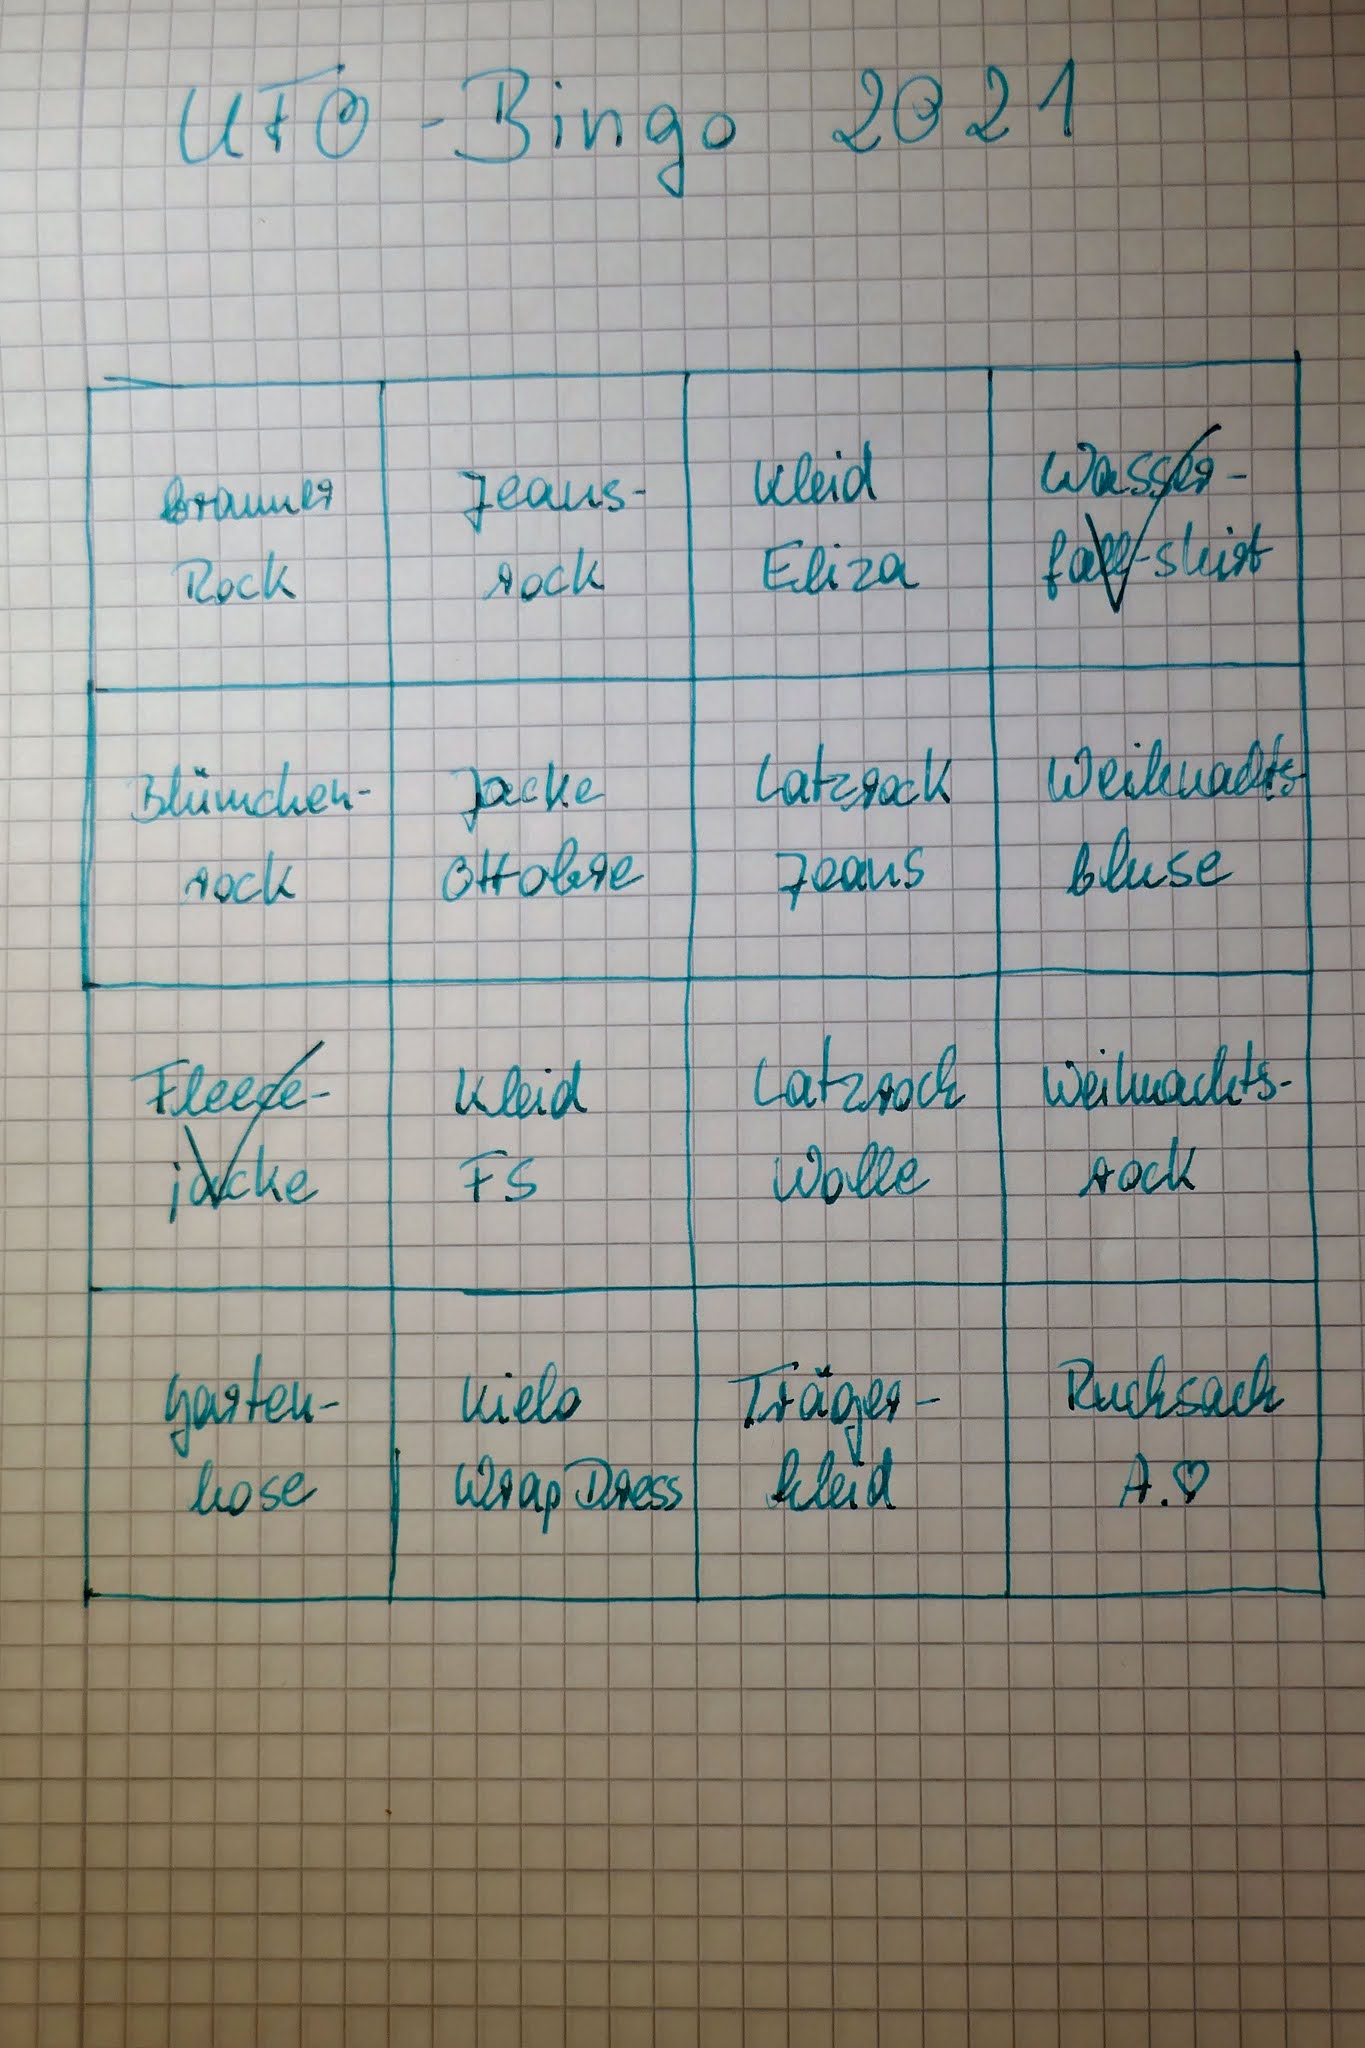 UFO-Bingo 2021
brauner
Rock
Jeans-
rock
Kleid
Eliza
Wasser-
fall-shirt
Blümchen-
rock
Jacke
Ottobre
Latzrock
Jeans
Weihnachts-
bluse
Fleece-
jacke
Kleid
FS
Latzrock
Wolle
Weihnachts-
rock
Garten-
hose
Kielo
Wrap Dress
Träger-
kleid
Rucksack
A.♡